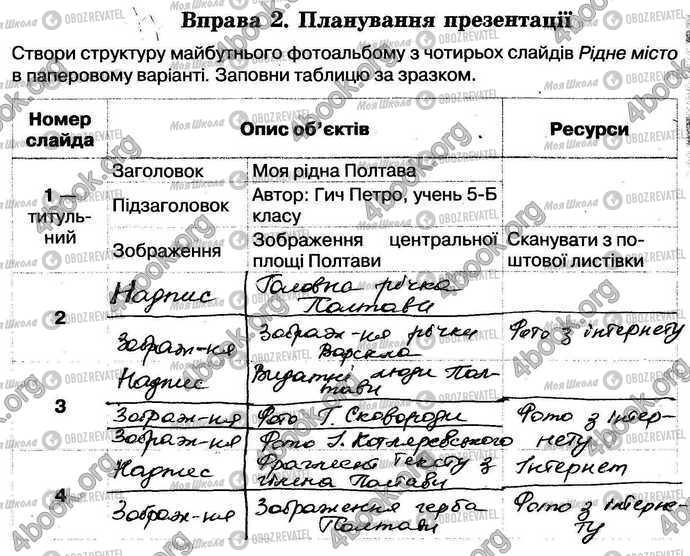 Вправа 2. Планування презентації
Створи структуру майбутнього фотоальбому з чотирьох слайдів Рідне місто
в паперовому варіанті. Заповни таблицю за зразком.
Номер слайда
Опис об'єктів
Ресурси
1 — титуль-
ний
Заголовок
Моя рідна Полтава
Підзаголовок
Автор: Гич Петро, учень 5-Б
класу
Зображення
Зображення центральної
площі Полтави
Сканувати з по-
штової листівки
2
Надпис
Головна річка
Полтави
Зображ-ня
Зображ-ня річки
Ворскла
Фото з інтернету
3
Надпис
Видатні люди Пол-
тави
Зображ-ня
Фото Г. Сковороди
Фото з інтер-
Зображ-ня
Фото І. Котляревського
нету
4
Надпис
Фрагмент тексту з
Полтави
Інтернет
Зображ-ня
Зображення герба
Полтави
Фото з інтерне-
ту
4book.org
Моя Школа OBOZREVATEL